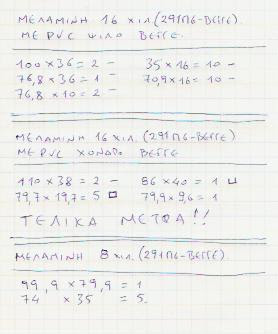 ΜΕΛΑΜΙΝΗ 16 ΧΙΛ. (291Π6-ΒΕΓΓΕ)
ΜΕ PVC ΨΙΛΟ ΒΕΓΓΕ.
100 x 36 = 2 – 35 x 16 = 10 –
76,8 x 36 = 1 – 70,9 x 16 = 10 –
76,8 x 10 = 2 –
ΜΕΛΑΜΙΝΗ 16 ΧΙΛ. (291Π6-ΒΕΓΓΕ)
ΜΕ PVC ΧΟΝΔΡΟ ΒΕΓΓΕ
110 x 38 = 2 – 86 x 40 = 1 ⊔
79,7 x 19,7 = 5 □ 79,9 x 9,6 = 1
ΤΕΛΙΚΑ ΜΕΤΡΑ!!
ΜΕΛΑΜΙΝΗ 8 ΧΙΛ. (291Π6-ΒΕΓΓΕ)
99,9 x 79,9 = 1
74 x 35 = 5.